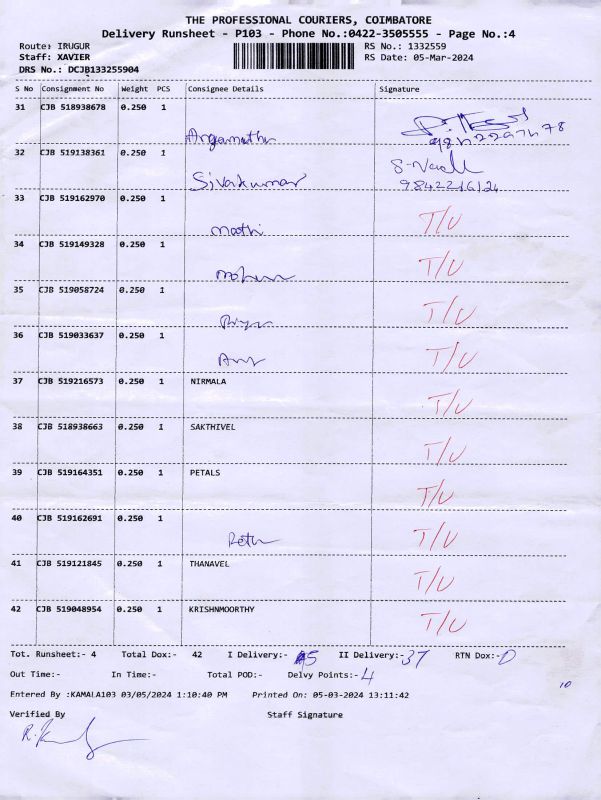 THE PROFESSIONAL COURIERS, COIMBATORE
Delivery Runsheet - P103 - Phone No.:0422-3505555 - Page No.:4
Route: IRUGUR RS No.: 1332559
Staff: XAVIER RS Date: 05-Mar-2024
DRS No.: DCJB133255904
S No Consignment No Weight PCS Consignee Details Signature
31 CJB 518938678 0.250 1
32 CJB 519138361 0.250 1
Sivakumar 9842216124
33 CJB 519162970 0.250 1
mathi T/U
34 CJB 519149328 0.250 1
T/U
35 CJB 519058724 0.250 1
T/U
36 CJB 519033637 0.250 1
T/U
37 CJB 519216573 0.250 1 NIRMALA
T/U
38 CJB 518938663 0.250 1 SAKTHIVEL
T/U
39 CJB 519164351 0.250 1 PETALS
T/U
40 CJB 519162691 0.250 1
T/U
41 CJB 519121845 0.250 1 THANAVEL
T/U
42 CJB 519048954 0.250 1 KRISHNMOORTHY
T/U
Tot. Runsheet:- 4 Total Dox:- 42 I Delivery:- 5 II Delivery:- 37 RTN Dox:- 0
Out Time:- In Time:- Total POD:- Delvy Points:- 4
10
Entered By :KAMALA103 03/05/2024 1:10:40 PM Printed On: 05-03-2024 13:11:42
Verified By Staff Signature